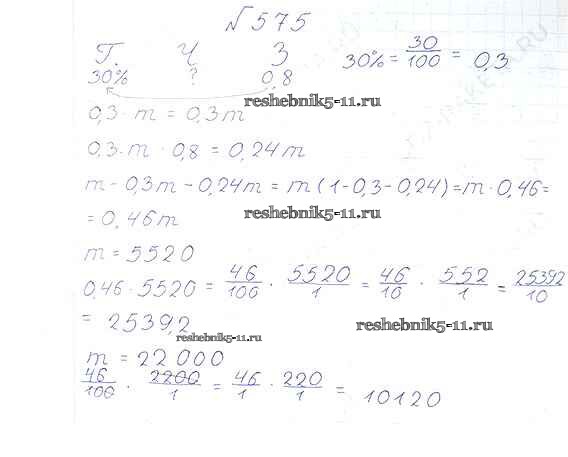 №575
Г. Ч З 30% = 30/100 = 0,3
30% ? 0,8
reshebnik5-11.ru
0,3 · m = 0,3m
0,3·m · 0,8 = 0,24m
m - 0,3m - 0,24m = m(1-0,3-0,24)=m·0,46=
= 0,46m
reshebnik5-11.ru
m = 5520
0,46 · 5520 = 46/100 · 5520/1 = 46/10 · 552/1 = 25392/10
= 2539,2
reshebnik5-11.ru
reshebnik5-11.ru
m = 22 000
46/100 · 2200/1 = 46/1 · 220/1 = 10120